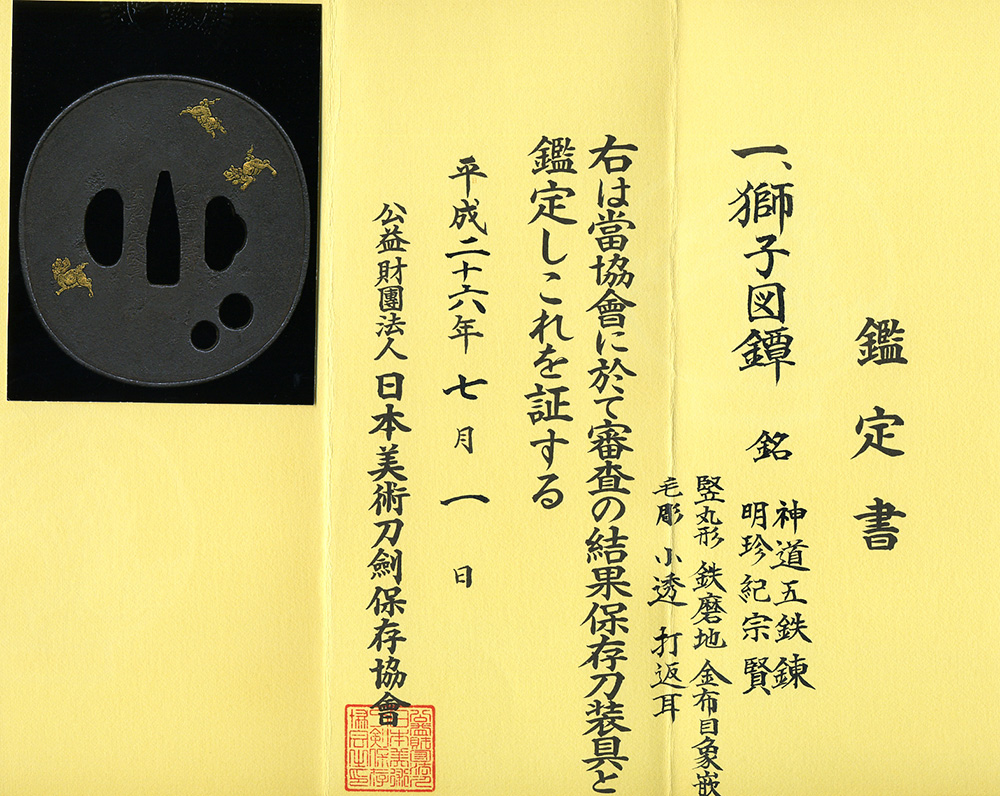 鑑定書
一、獅子図鐔 銘
神道五鉄錬
明珍紀宗賢
竪丸形 鉄磨地 金布目象嵌
毛彫 小透 打返耳
右は當協會に於て審査の結果保存刀装具と
鑑定しこれを証する
平成二十六年七月一日
公益財團法人 日本美術刀劍保存協會